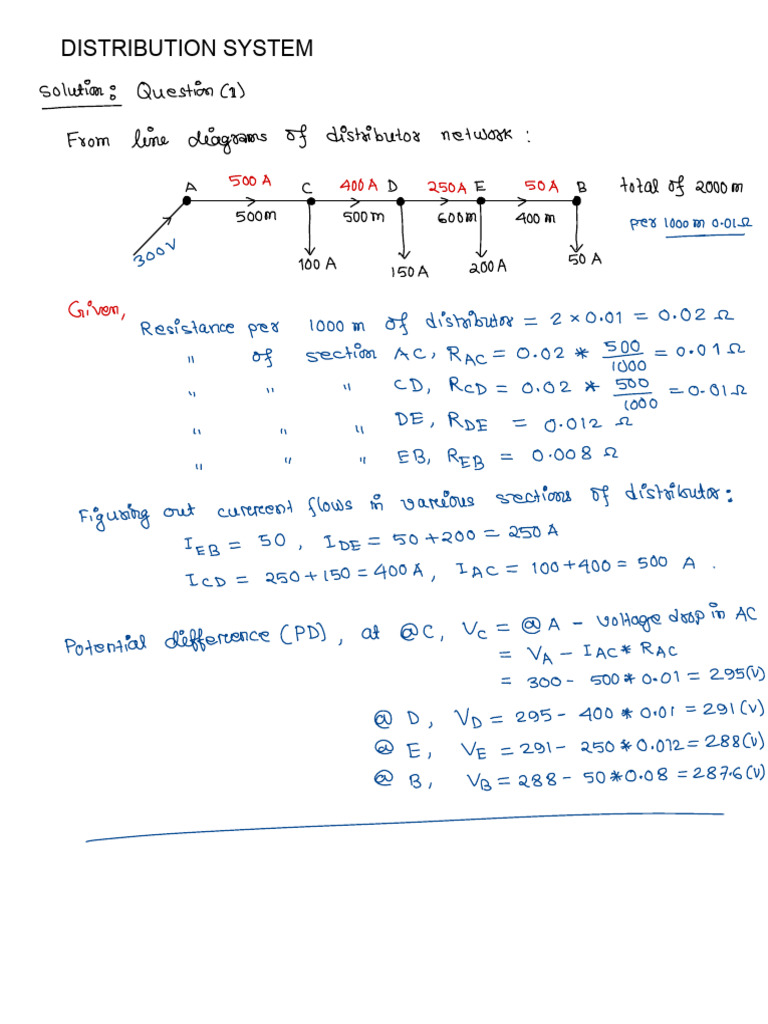 DISTRIBUTION SYSTEM
Solution: Question (1)
From line diagrams of distributor network:
A 500 A C 400 A D 250A E 50 A B total of 2000 m
500m 500m 600m 400 m per 1000 m 0.01Ω
300V
100 A 150 A 200A 50 A
Given,
Resistance per 1000 m of distributor = 2 × 0.01 = 0.02 Ω
" of section AC, RAC = 0.02 * 500/1000 = 0.01 Ω
" " " CD, RCD = 0.02 * 500/1000 = 0.01 Ω
" " " DE, RDE = 0.012 Ω
" " " EB, REB = 0.008 Ω
Figuring out current flows in various sections of distributor:
IEB = 50, IDE = 50 + 200 = 250 A
ICD = 250 + 150 = 400 A, IAC = 100 + 400 = 500 A.
Potential difference (PD), at @C, VC = @ A - voltage drop in AC
= VA - IAC * RAC
= 300 - 500 * 0.01 = 295(V)
@ D, VD = 295 - 400 * 0.01 = 291 (V)
@ E, VE = 291 - 250 * 0.012 = 288(V)
@ B, VB = 288 - 50 * 0.08 = 287.6 (V)